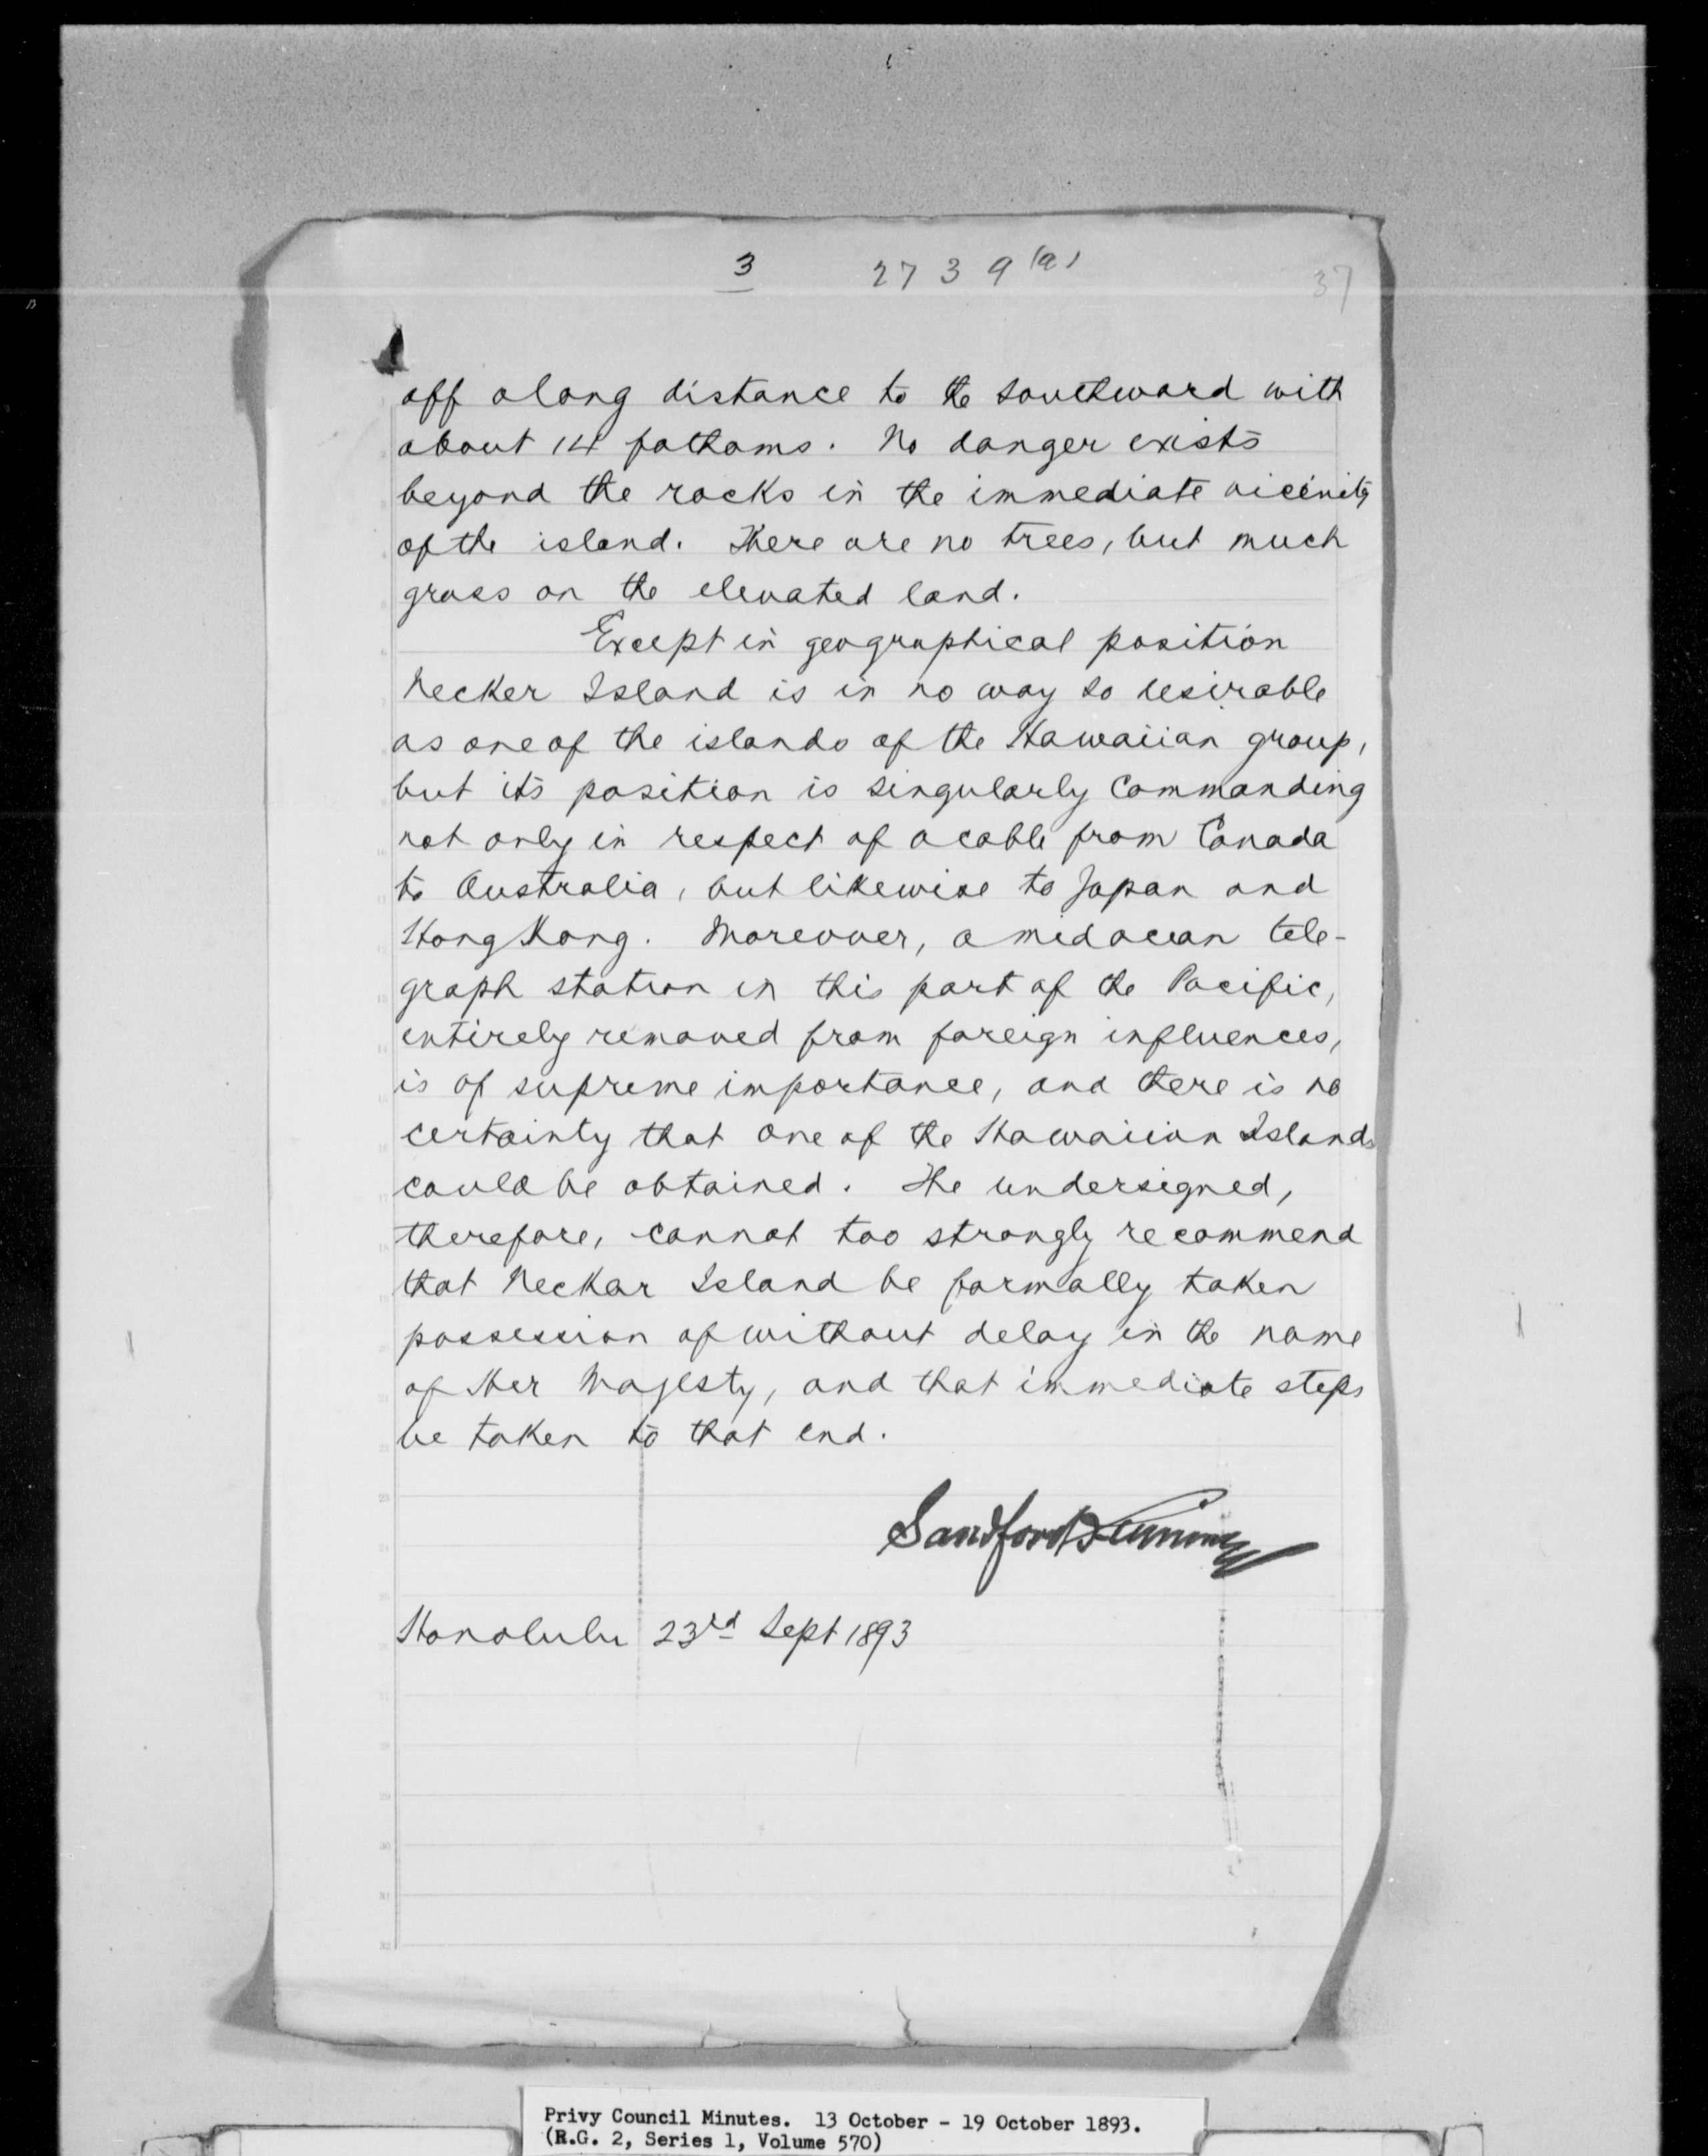 3 2739(a) 37
off a long distance to the southward with
about 14 fathoms. No danger exists
beyond the rocks in the immediate vicinity
of the island. There are no trees, but much
grass on the elevated land.
Except in geographical position
Necker Island is in no way so desirable
as one of the islands of the Hawaiian group,
but its position is singularly commanding
not only in respect of a cable from Canada
to Australia, but likewise to Japan and
Hong Kong. Moreover, a mid ocean tele-
graph station in this part of the Pacific,
entirely removed from foreign influences,
is of supreme importance, and there is no
certainty that one of the Hawaiian Islands
could be obtained. The undersigned,
therefore, cannot too strongly recommend
that Neckar Island be formally taken
possession of without delay in the name
of Her Majesty, and that immediate steps
be taken to that end.
Sandford Fleming
Honolulu 23rd Sept 1893
Privy Council Minutes. 13 October - 19 October 1893.
(R.G. 2, Series 1, Volume 570)